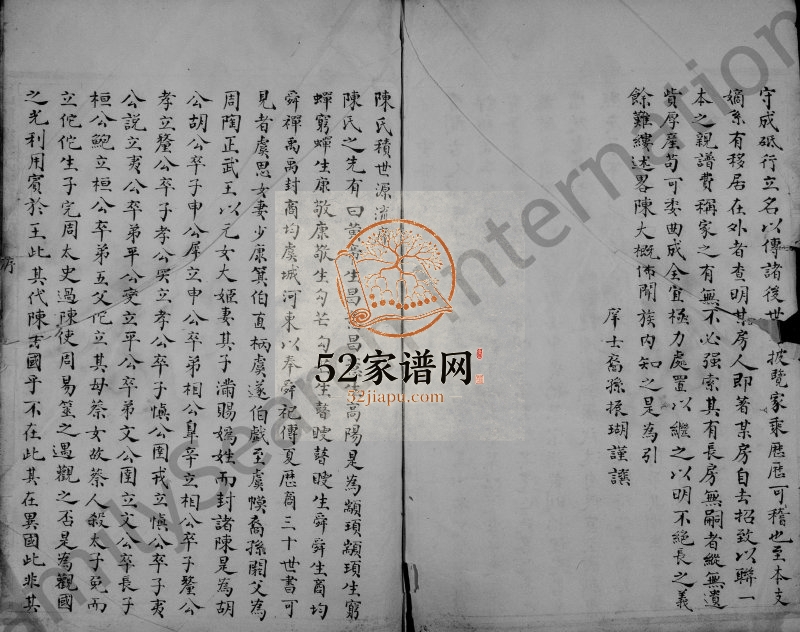 守成砥行立名以傳諸後世 披覽家乘歷歷可稽也至本支
嫡系有移居在外者查明某房人即著某房自去招致以聯一
本之親譜費稱家之有無不必強索其有長房無嗣者縱無遺
貲厚產苟可委曲成全宜極力處置以繼之以明不絕長之義
餘難縷述畧陳大概俾闔族內知之是為引
庠士裔孫振瑚謹譔
陳氏積世源流
陳氏之先有曰黃帝生昌 昌 高陽是為顓頊顓頊生窮
蟬窮蟬生康敬康敬生勾芒勾 生瞽瞍瞽瞍生舜舜生商均
舜禪禹禹封商均虞城河東以奉舜祀傳夏歷商三十世書可
見者虞思女妻少康箕伯直柄虞遂伯戲至虞幙裔孫閼父為
周陶正武王以元女大姬妻其子滿賜媯姓而封諸陳是為胡
公胡公卒子申公犀立申公卒弟相公皐立相公卒子釐公
孝立釐公卒子孝公突立孝公卒子慎公圉戎立慎公卒子夷
公說立夷公卒弟平公燮立平公卒弟文公圉立文公卒長子
桓公鮑立桓公卒弟五父佗立其母蔡女故蔡人殺太子免而
立佗佗生子完周太史過陳使周易筮之遇觀之否是為觀國
之光利用賓於王此其代陳有國乎不在此其在異國此非其
序
52家谱网
52jiapu.com
FamilySearch International